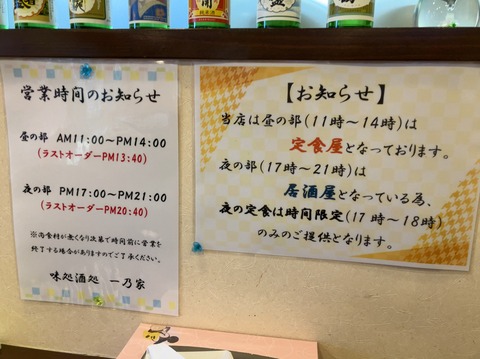 営業時間のお知らせ
昼の部 AM11:00～PM14:00
(ラストオーダーPM13:40)
夜の部 PM17:00～PM21:00
(ラストオーダーPM20:40)
※尚食材が無くなり次第で時間前に営業を
終了する場合がありますのでご了承ください。
味処酒処 一乃家
【お知らせ】
当店は昼の部(11時～14時)は
定食屋となっております。
夜の部(17時～21時)は
居酒屋となっている為、
夜の定食は時間限定(17時～18時)
のみのご提供となります。